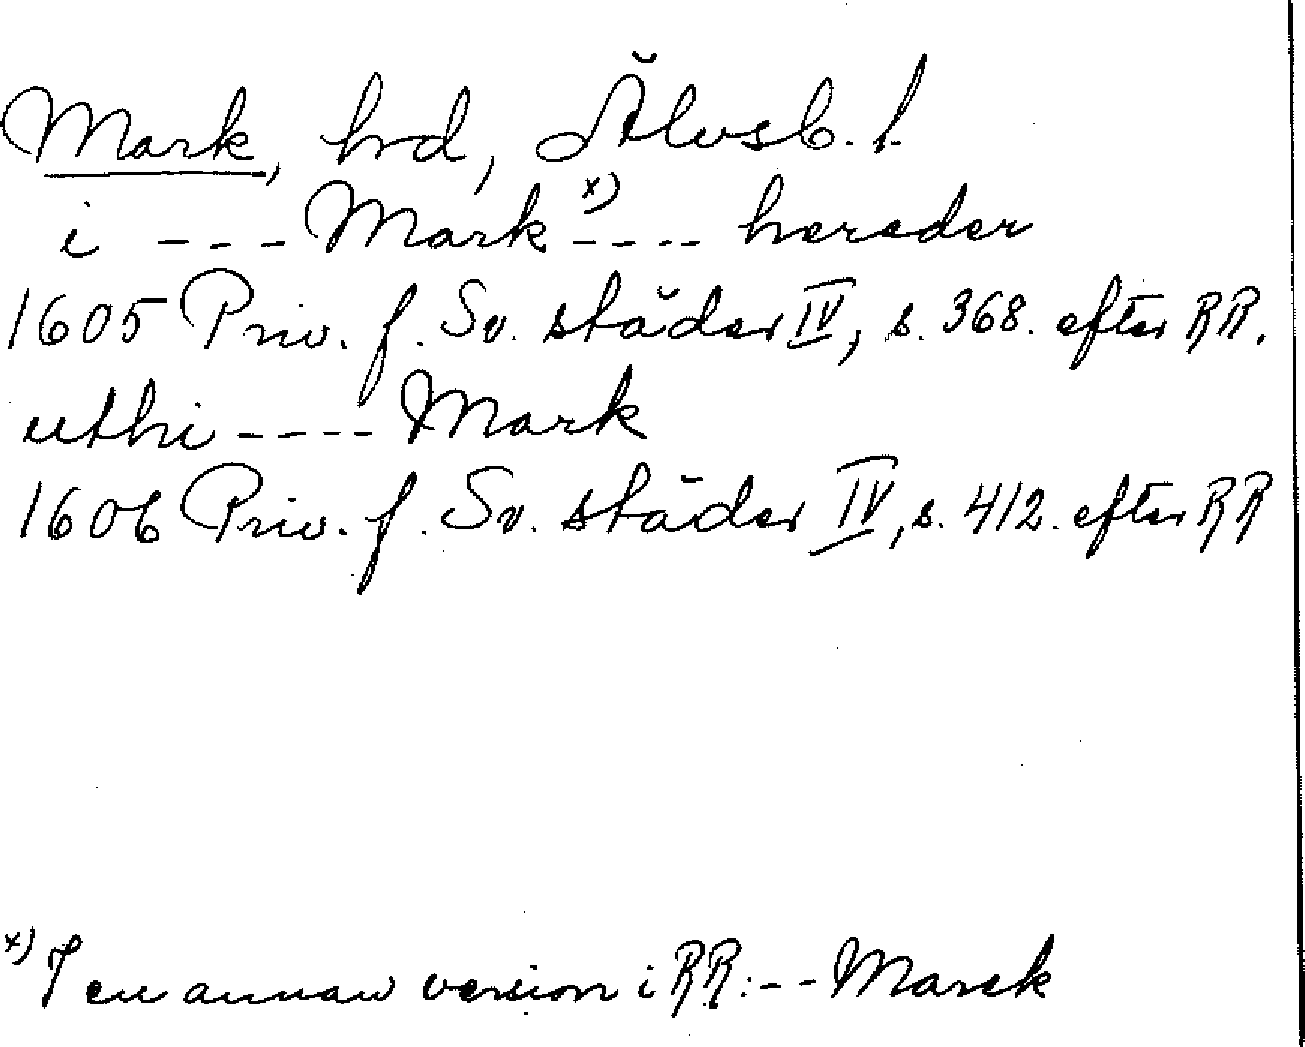 Mark, hrd, Älvsb. l.
i --- Mark x) ---- hereder
1605 Priv. f. Sv. städer IV, s. 368. efter RR.
uthi ---- Mark
1606 Priv. f. Sv. städer IV, s. 412. efter RR
x) I en annan version i RR: -- Marck